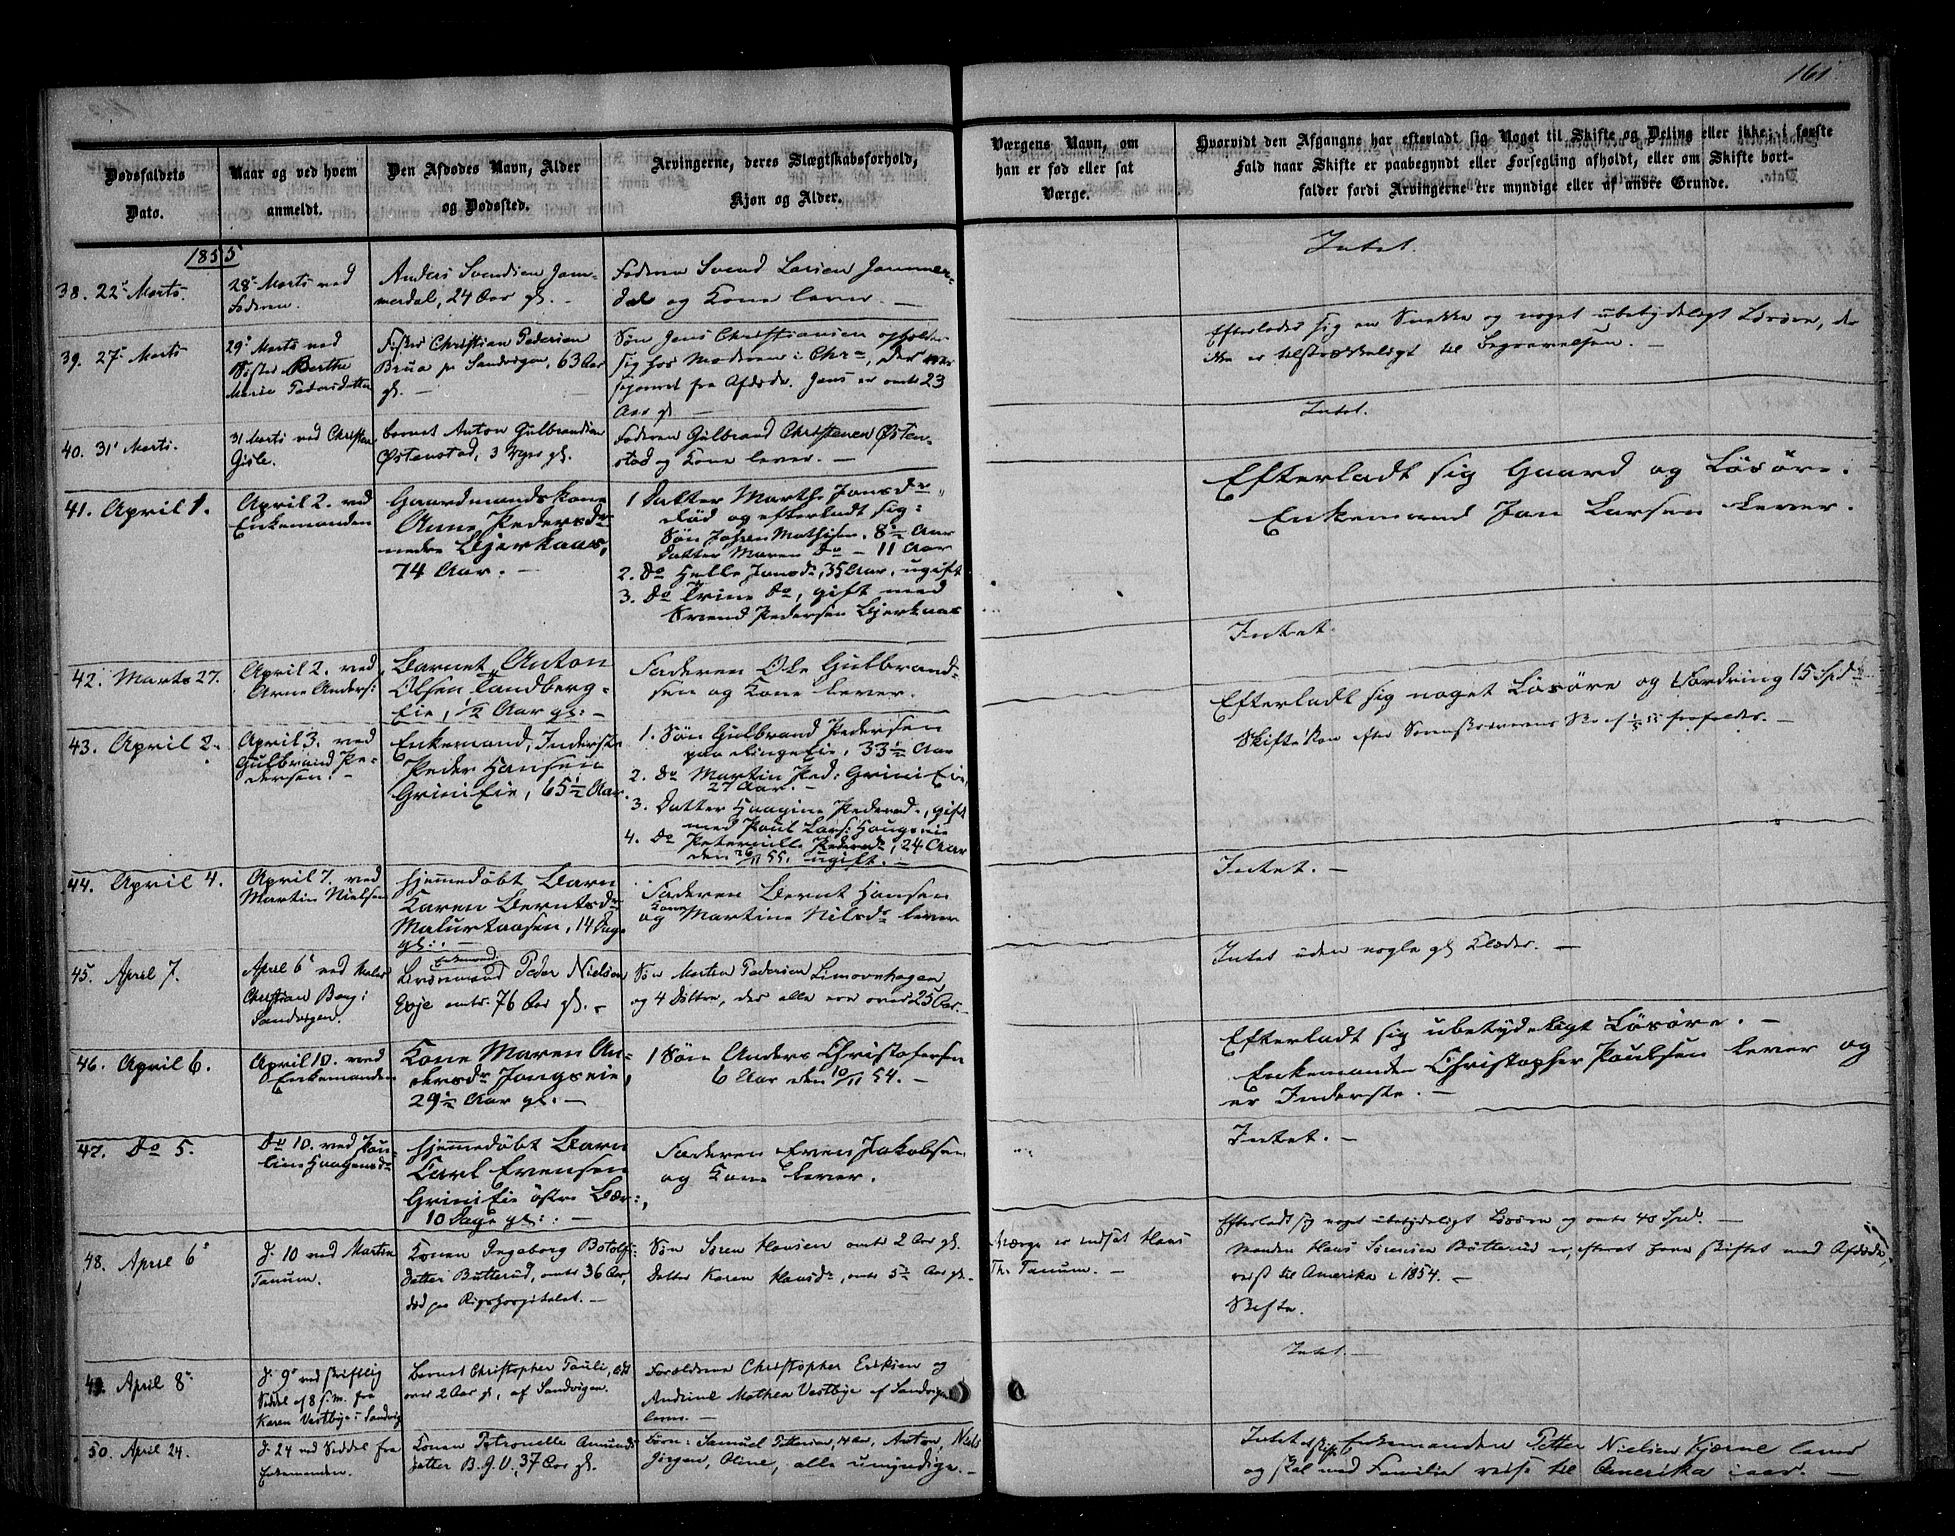 161
Dødsfaldets
Dato.
Naar og ved hvem
anmeldt.
Den Afdødes Navn, Alder
og Dødssted.
Arvingerne, deres Slægtskabsforhold,
Kjøn og Alder.
Værgens Navn, om
han er fød eller sat
Værge.
Hvorvidt den Afgangne har efterladt sig Noget til Skifte og Deling eller ikke; i første
Fald naar Skifte er paabegyndt eller Forsegling afholdt, eller om Skifte bort-
falder fordi Arvingerne ere myndige eller af andre Grunde.
1855
38. 22' Marts.
28' Marts ved
Faderen.
Anders Svendsen Jam-
merdal, 24 Aar gl. –
Faderen Svend Larsen Jammer-
dal og Kone lever. –
Intet.
39. 27' Marts
29' Marts ved
Søster Berthe
Marie Pedersdatter
Fisker Christian Pedersen
Brua pr Sandvigen, 63 Aar
gl. –
Søn Jens Christiansen opholder
sig hos Moderen i Chra, der
separeret fra Afdøde. Jens er omtr 23
Aar gl –
Efterlades sig en Snekke og noget ubetydeligt Løsøre, der
ikke er tilstrækkeligt til Begravelsen. –
40. 31' Marts.
31 Marts ved Christen
Gisle.
barnet Anton Gulbrandsen
Østenstad, 3 Uger gl.
Faderen Gulbrand Christensen Østen-
stad og Kone lever. –
Intet.
41. April 1.
April 2. ved
Enkemanden
Gaardmandskone
Anne Pedersdr
nedre Bjerkaas,
74 Aar. –
1 Datter Marthe Jansdr
død og efterladt sig:
Søn Johan Mathisen, 8½ Aar
Datter Maren Do – 11 Aar
2. Do Helle Jansdr, 35 Aar, ugift
3. Do Trine Do, gift med
Svend Pedersen Bjerkaas
Efterladt sig Gaard og Løsøre.
Enkemand Jan Larsen lever.
42. Marts 27.
April 2. ved
Arne Anders:
Barnet Anton
Olsen Tandberg-
Eie, ½ Aar gl: –
Faderen Ole Gulbrand-
sen og Kone lever.
Intet.
43. April 2.
April 3. ved
Gulbrand Pe-
dersen. –
Enkemand, Inderste
Peder Hansen
Grini Eie, 65½ Aar.
1. Søn Gulbrand Pedersen
paa Ringe Eie, 33½ Aar
2. Do Martin Ped: Grini Eie,
27 Aar. –
3. Datter Haagine Pedersd., gift
med Poul Lars: Haugseie
4. Do Peternille Pedersdr, 24 Aar
den 26/11 55. ugift. –
Efterladt sig noget Løsøre og Fordring 15 Spd
44. April 4.
April 7. ved
Martin Nielsen
hjemmedøbt Barn
Karen Berntsdr
Maturtaasen, 14 Dage
gl: –
Faderen Bernt Hansen
og Kone Martine Nilsdr lever
Intet. –
45. April 7.
April 6' ved Maler
Christian Berg i
Sandvigen.
Enkemand
Peder Nielsen
Evje omtr. 76 Aar gl. –
Søn Morten Pedersen Limovnhagen
og 4 Døttre, der alle ere over 25 Aar. –
Intet uden nogle gl Klæder. –
46. April 6.
April 10. ved
Enkemanden
Kone Maren An-
dersdr Jongseie,
29½ Aar gl. –
1 Søn Anders Christofersen
6 Aar den 10/11 54. –
Efterladt sig ubetydeligt Løsøre. –
Enkemanden Christopher Poulsen lever og
er Inderste. –
47. Do 5.
Do 10. ved Pau-
line Haagensdr
hjemmedøbt Barn
Carl Evensen
Grini Eie østre Bær:,
10 Dage gl: –
Faderen Even Jakobsen
og Kone lever.
Intet. –
48. April 6'
d. 10 ved Martin
Tanum.
Konen Ingeborg Botolfs-
datter Butterud, omtr 36 Aar,
død paa Rigshospitalet. –
Søn Søren Hansen omtr 2 Aar gl.
Datter Karen Hansdr, omtr 5½ Aar gl.
Værge er indsat Hans
Th. Tanum. –
Efterladt sig noget ubetydeligt Løsøre og omtr 40 Spd. –
Manden Hans Sørensen Butterud er, efterat have skiftet med Afdøde,
reist til Amerika i 1854. –
Skifte.
49. April 8'
d. 9' ved skriftlig
Seddel af 8 s.m. fra
Karen Vestbye i Sandvig
Barnet Christopher Pauli,
over 2 Aar gl, af Sandvigen.
Forældrene Christopher Eriksen og
Andrine Mathea Vestbye af Sandvigen
lever. –
Intet. –
50. April 24.
d. 24 ved Seddel fra
Enkemanden.
Konen Petronelle Amunds
datter B.G.V., 37 Aar gl.
Børn: Samuel Pettersen, Anton, Niels
Jørgen, Oline, alle umyndige. –
Intet Enkemanden Petter Nielsen Kjerne lever
og skal med Familie reise til Amerika iaar. –